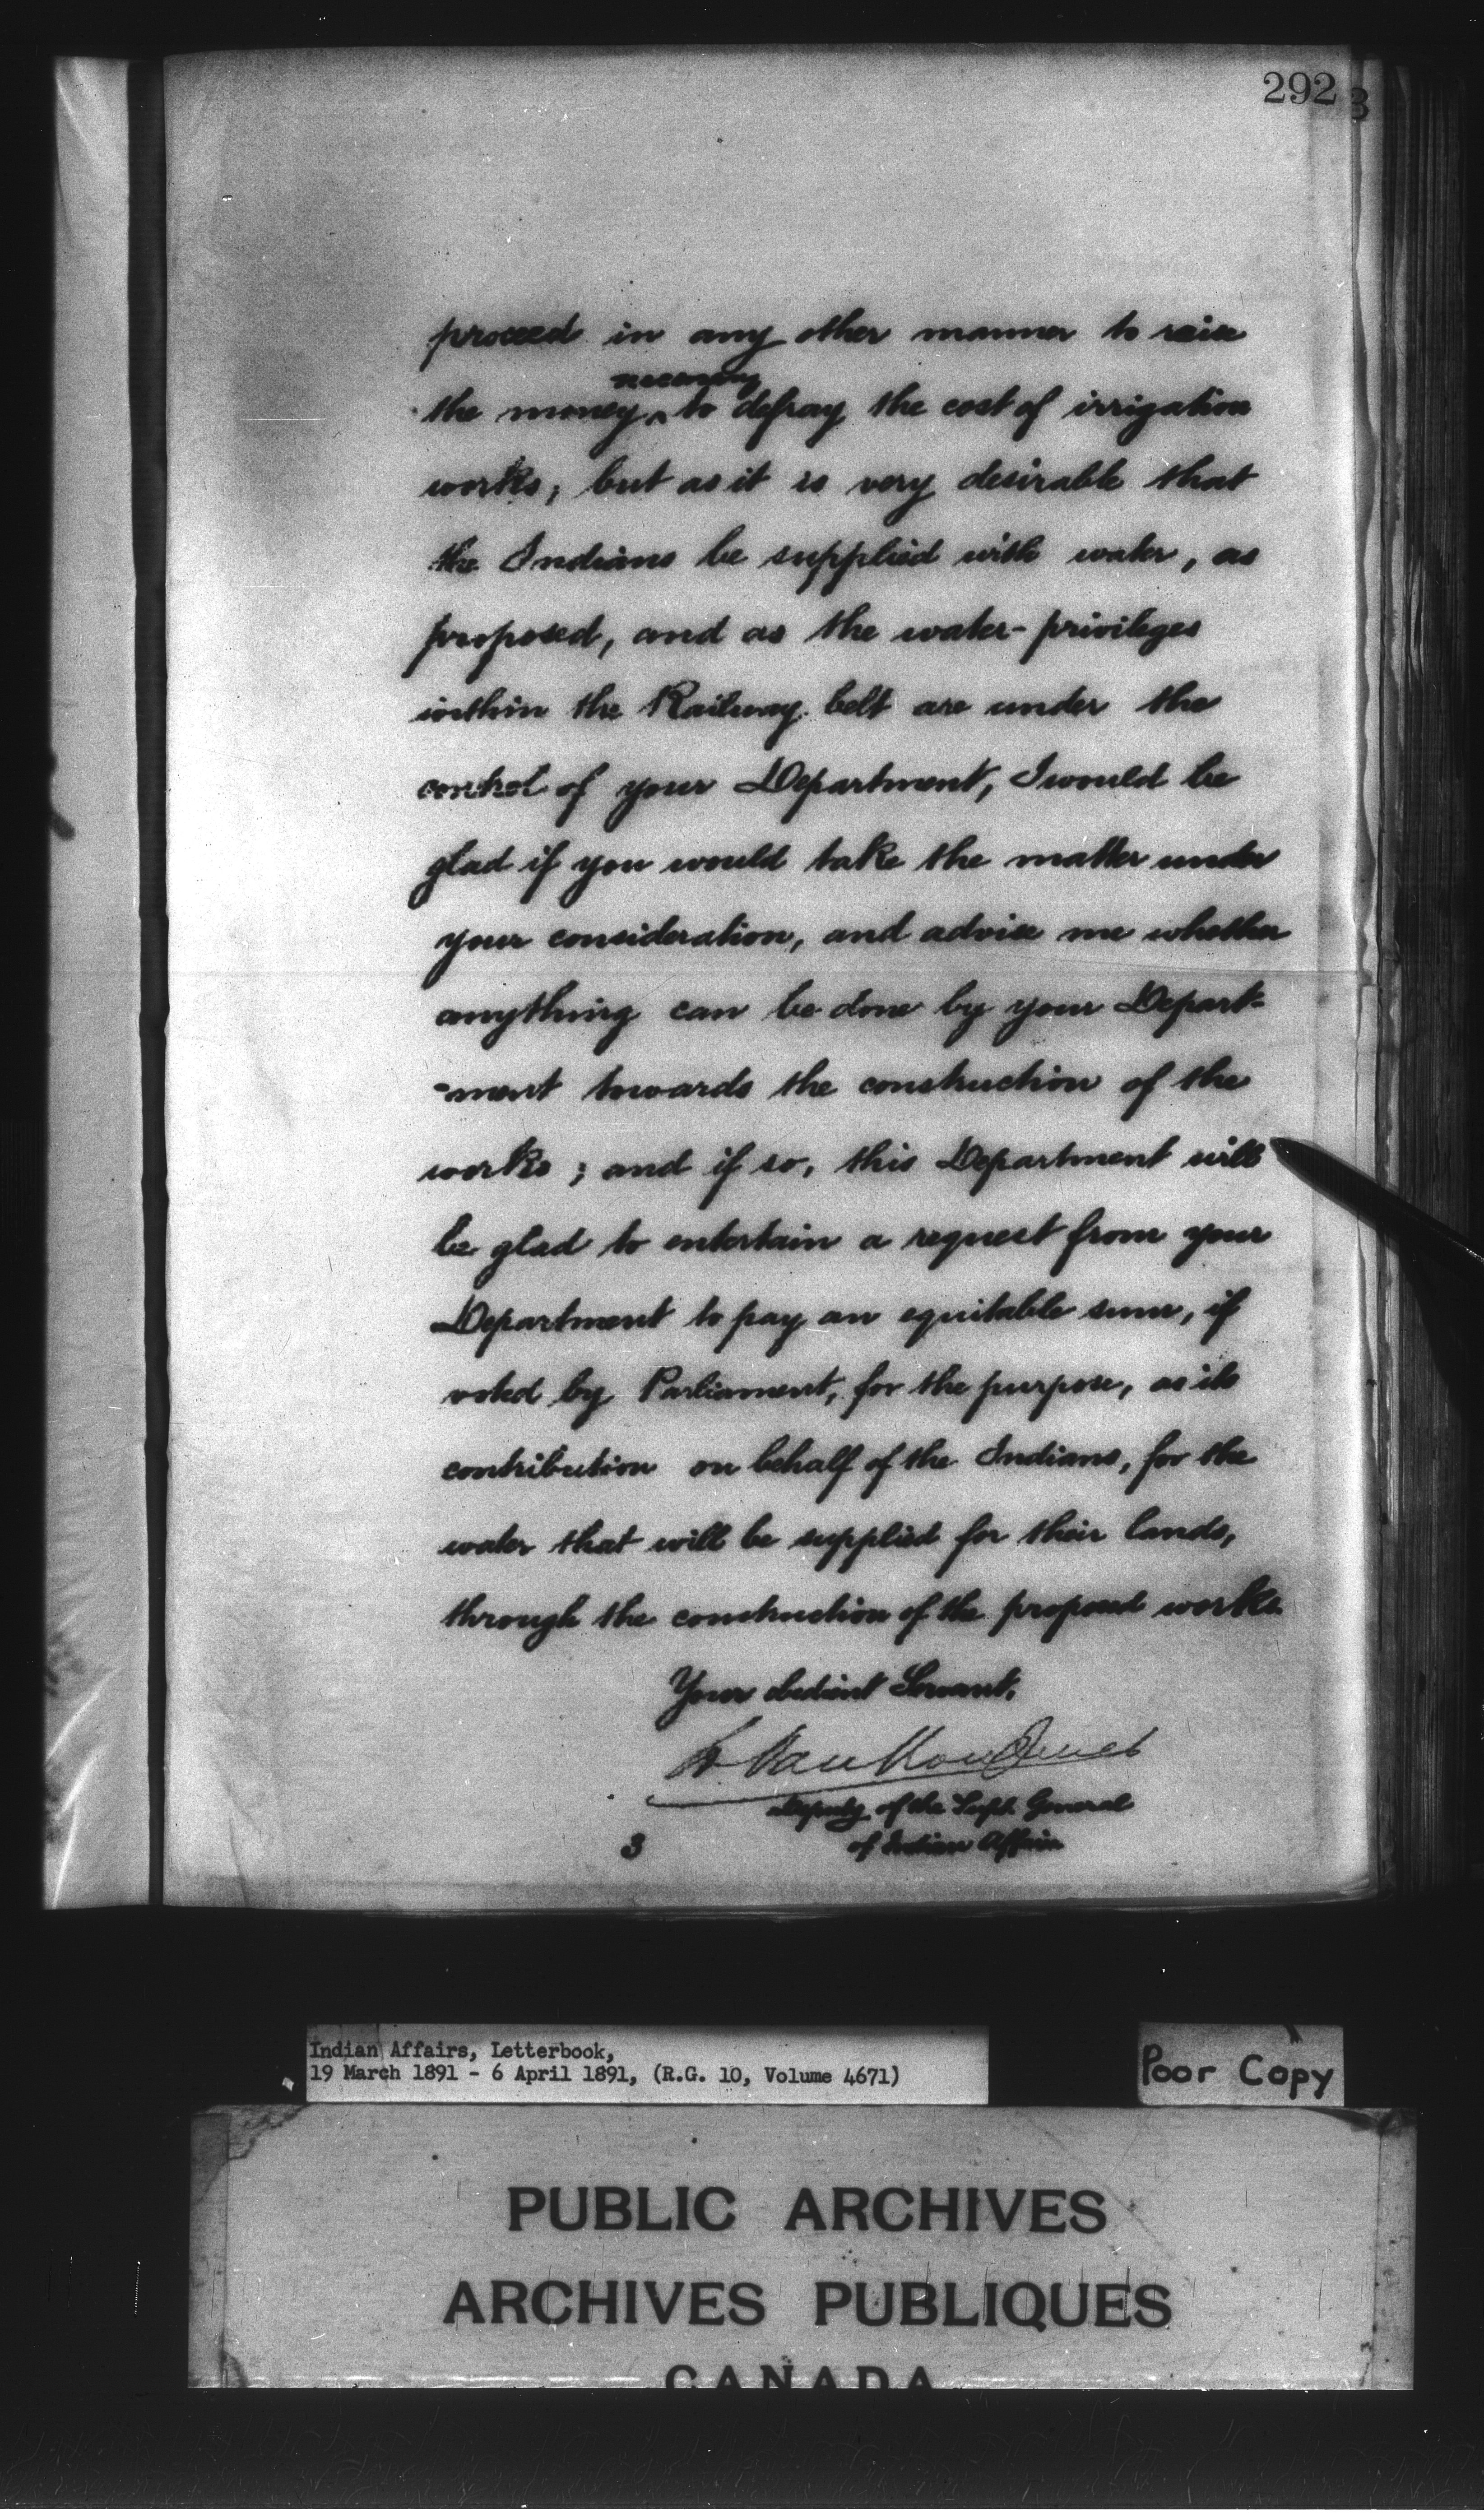 292
3
proceed in any other manner to raise
necessary
the money ‸ to defray the cost of irrigation
works; but as it is very desirable that
the Indians be supplied with water, as
proposed, and as the water-privileges
within the Railway belt are under the
control of your Department, I would be
glad if you would take the matter under
your consideration, and advise me whether
anything can be done by your Depart=
=ment towards the construction of the
works; and if so, this Department will
be glad to entertain a request from your
Department to pay an equitable sum, if
voted by Parliament, for the purpose, as its
contribution on behalf of the Indians, for the
water that will be supplied for their lands,
through the construction of the proposed works.
Your obedient Servant,
L. VanKoughnet
Deputy of the Supt. General
of Indian Affairs
3
Indian Affairs, Letterbook,
19 March 1891 - 6 April 1891, (R.G. 10, Volume 4671)
Poor Copy
PUBLIC ARCHIVES
ARCHIVES PUBLIQUES
CANADA